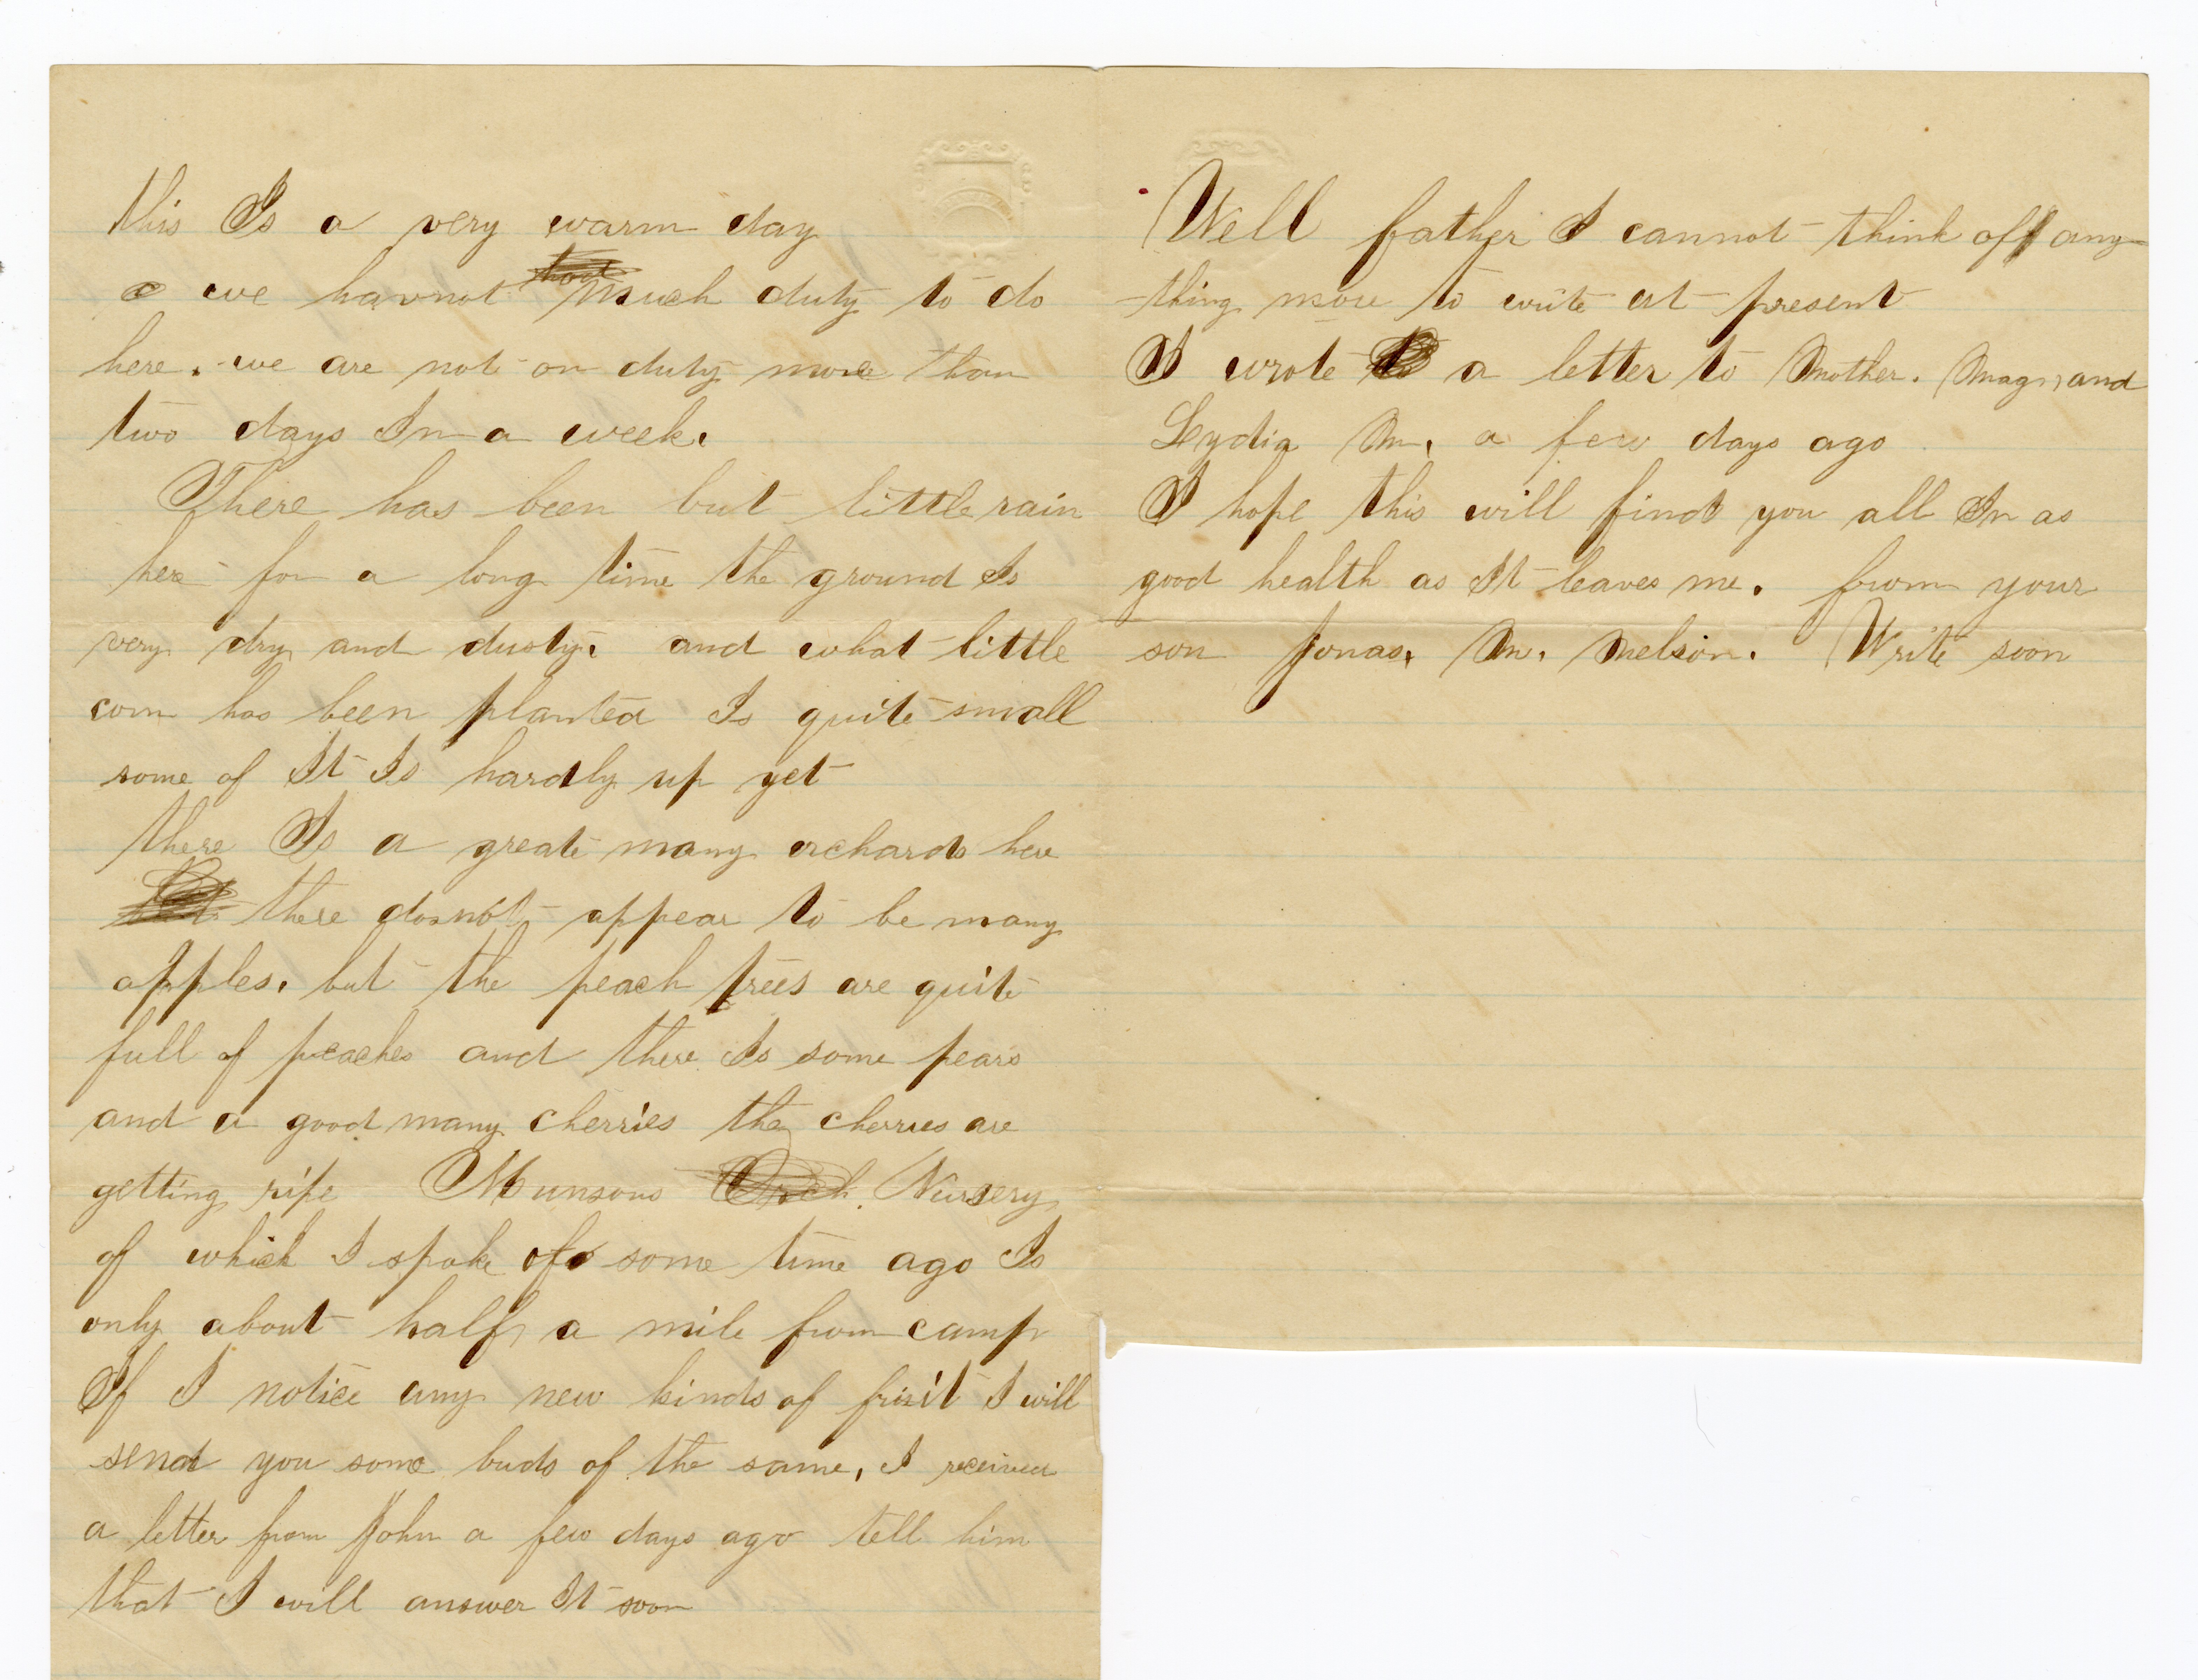 this Is a very warm day
we havnot much duty to do
here. we are not on duty more than
two days In a week.
There has been but little rain
here for a long time the ground Is
very dry and dusty. and what little
corn has been planted Is quite small
some of It Is hardly up yet
there Is a great many orchards here
there dosnot appear to be many
apples. but the peach trees are quite
full of peaches and there Is some pears
and a good many cherries the cherries are
getting ripe Munsons Nursery
of which I spoke of some time ago Is
only about half a mile from camp
If I notice any new kinds of fruit I will
send you some buds of the same, I received
a letter from John a few days ago tell him
that I will answer It soon
Well father I cannot think of any
thing more to write at present
I wrote a letter to Mother. Mag, and
Lydia M. a few days ago
I hope this will find you all In as
good health as It leaves me. from your
son Jonas. M. Melson. Write soon